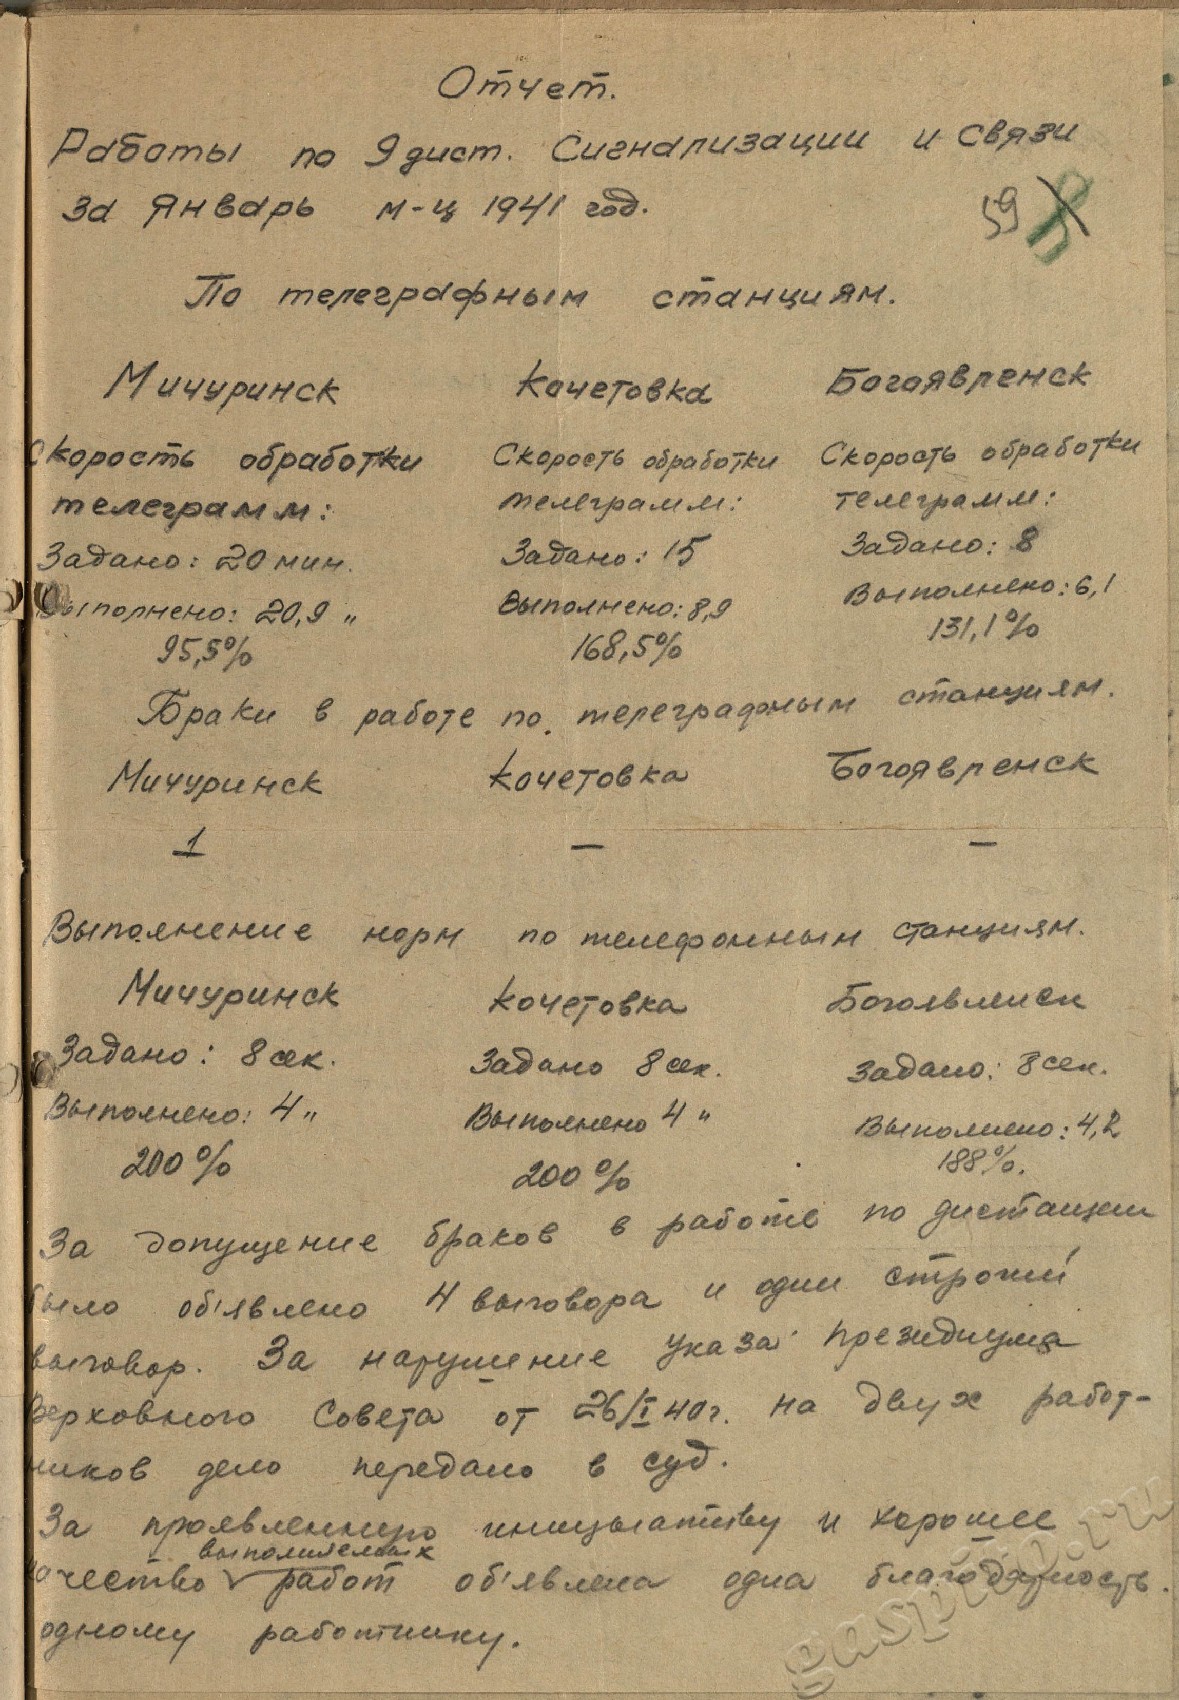 Отчет.
Работы по 9 дист. Сигнализации и связи
за Январь м-ц 1941 год.
59
По телеграфным станциям.
Мичуринск Кочетовка Богоявленск
Скорость обработки Скорость обработки Скорость обработки
телеграмм: телеграмм: телеграмм:
Задано: 20 мин. Задано: 15 Задано: 8
Выполнено: 20,9 " Выполнено: 8,9 Выполнено: 6,1
95,5% 168,5% 131,1%
Браки в работе по телеграфным станциям.
Мичуринск Кочетовка Богоявленск
1 — —
Выполнение норм по телефонным станциям.
Мичуринск Кочетовка Богоявленск
Задано: 8 сек. Задано 8 сек. Задано: 8 сек.
Выполнено: 4 " Выполнено 4 " Выполнено: 4,2
200% 200% 188%.
За допущение браков в работе по дистанции
было об'явлено 4 выговора и один строгий
выговор. За нарушение указа президиума
Верховного Совета от 26/I 40 г. на двух работ-
ников дело передано в суд.
За проявленную инициативу и хорошее
выполняемых
качество работ об'явлена одна благодарность
одному работнику.
gaspito.ru